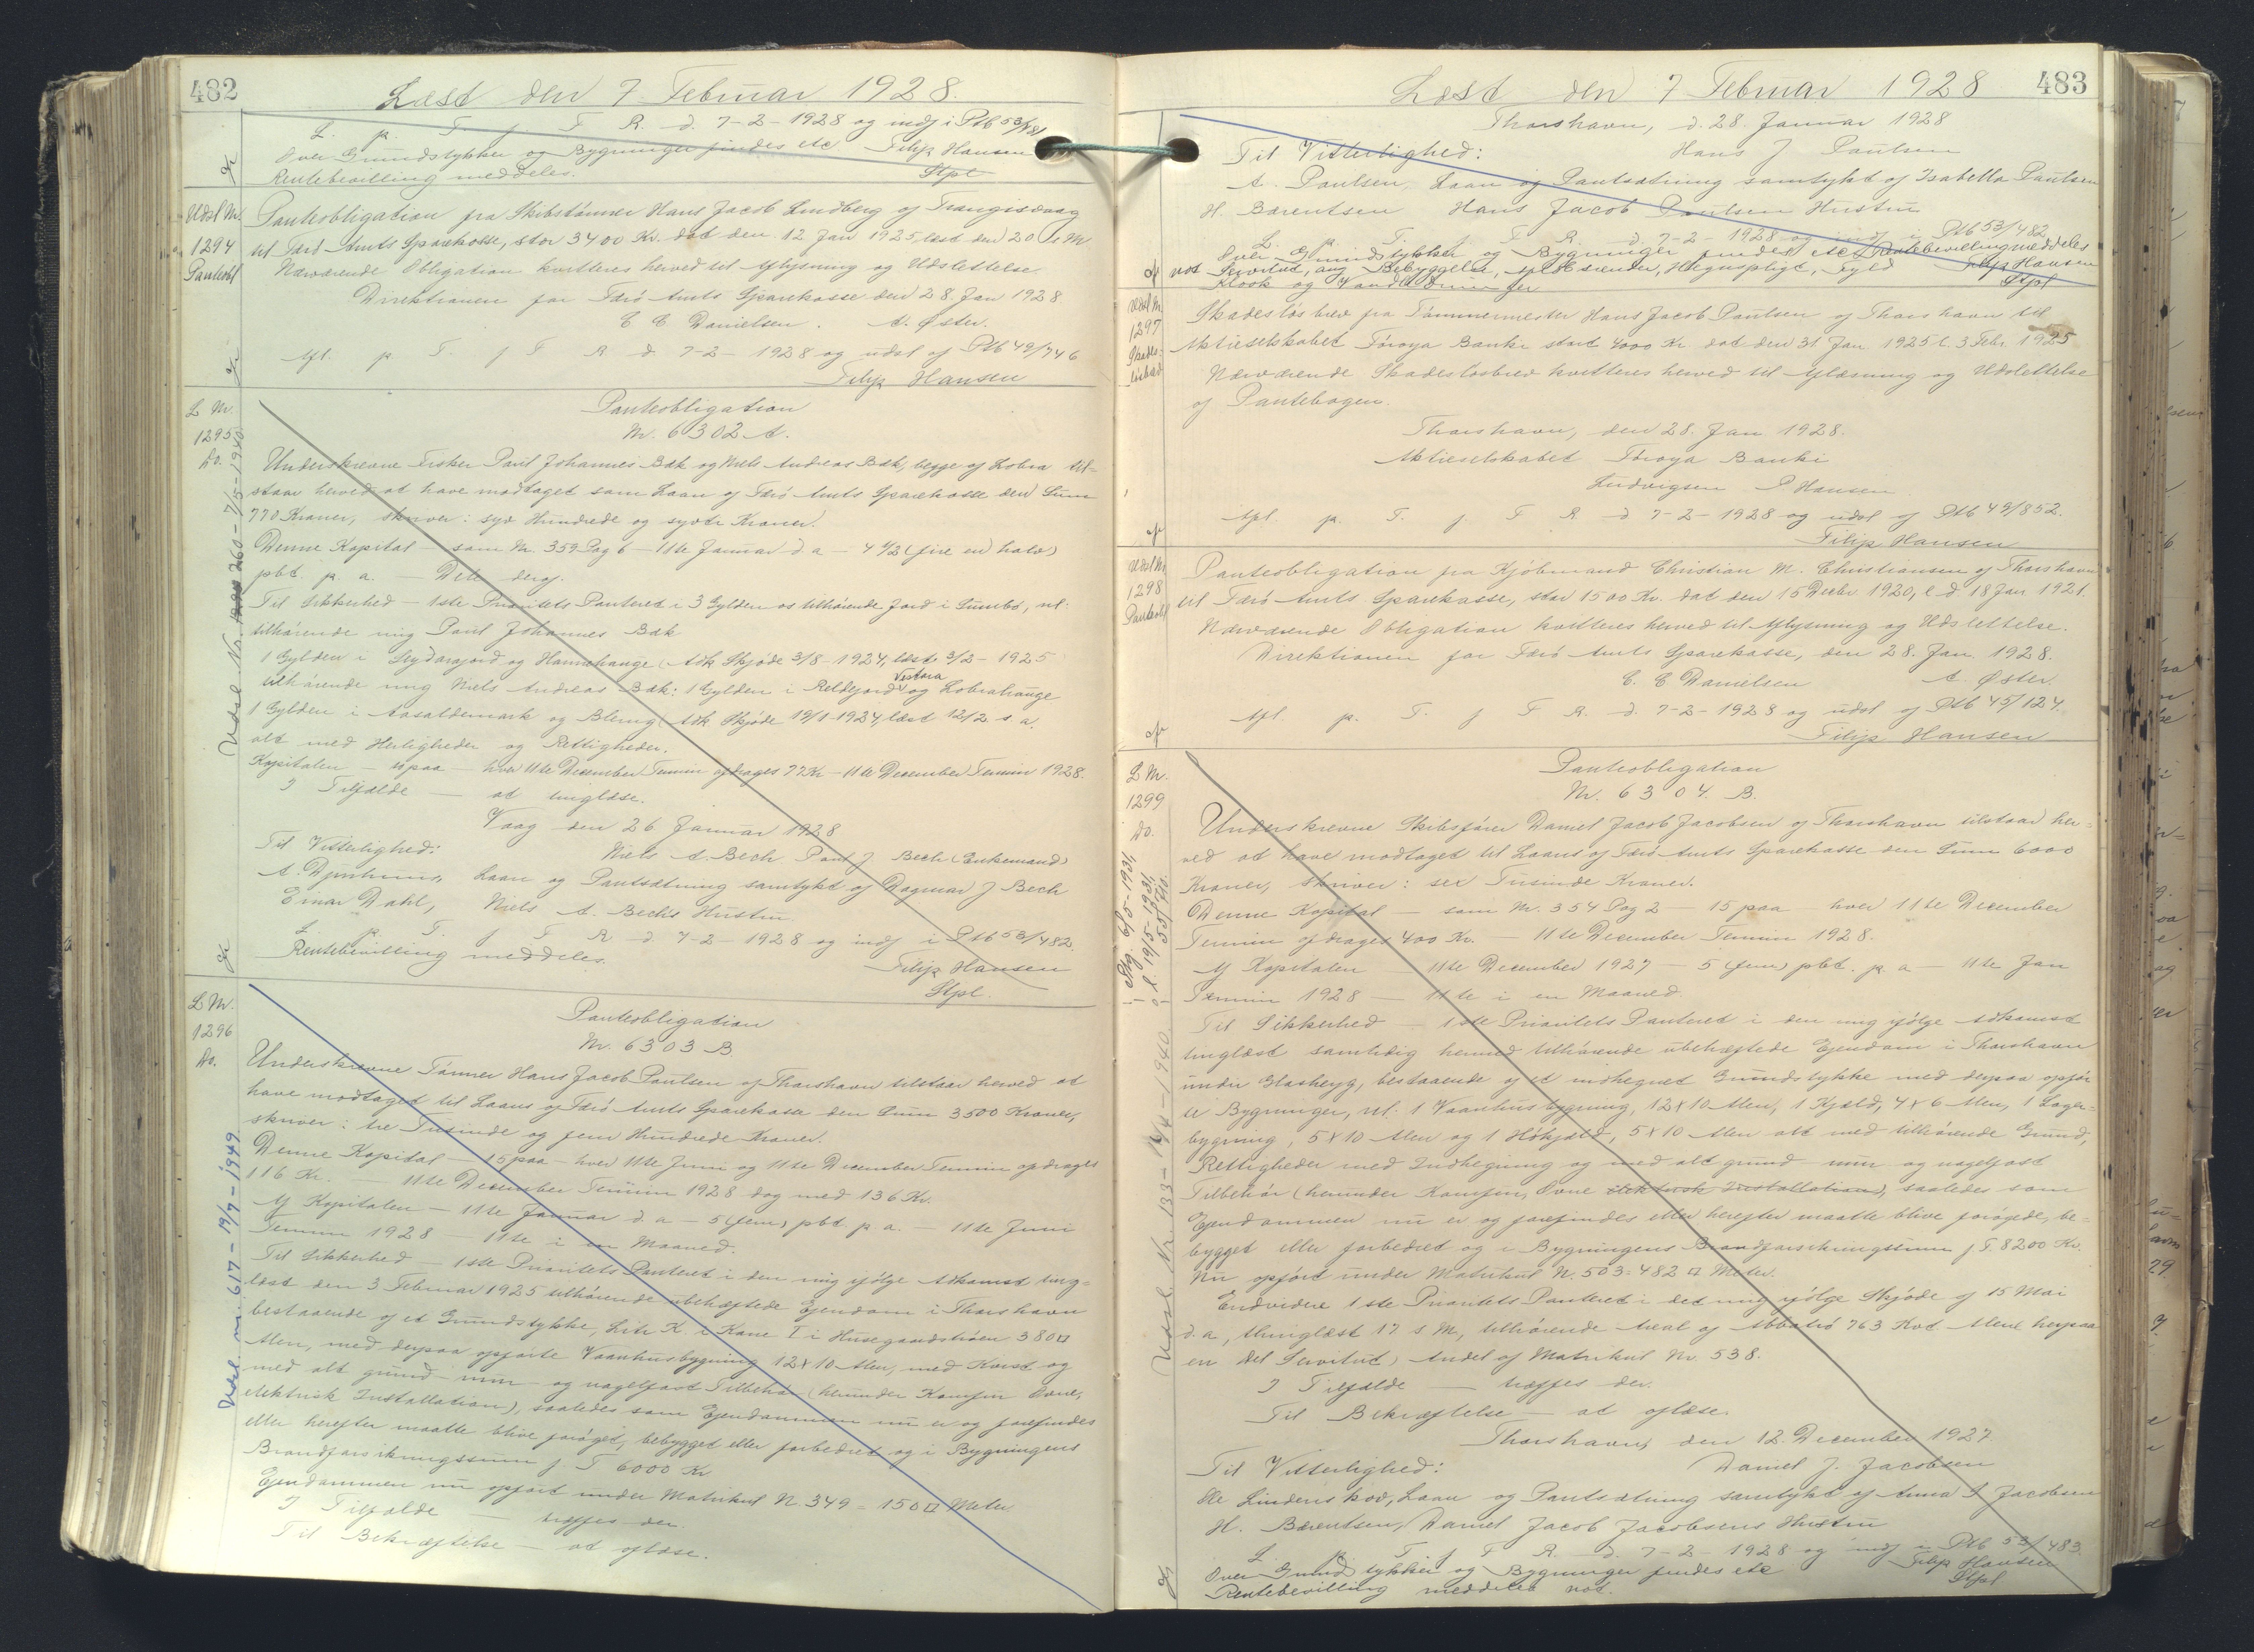 482
Læst den 7 Februar 1928.
L. p. T. f. F. R. d. 7-2-1928 og indf i Ptb 53/481
Over Grundstykker og Bygninger findes etc Filip Hansen
Rentebevilling meddeles. Stpl
Udsl Nr. 1294 Panteobl
Panteobligation fra Skibstømrer Hans Jacob Lindberg af Trangisvaag
til Færø Amts Sparekasse, stor 3400 Kr. dat den 12 Jan 1925, læst den 20. s. M.
Nærværende Obligation kvitteres herved til Aflysning og Udslettelse
Direktionen for Færø Amts Sparekasse den 28. Jan 1928
C C Danielsen. A. Øster.
Afl. p T f F R d 7-2-1928 og udsl af Ptb 49/746
Filip Hansen
L Nr. 1295 Do.
Udsl. Nr. 260 - 7/5-1940
Panteobligation
Nr. 6302 A.
Underskrevne Fisker Poul Johannes Bæk og Niels Andreas Bæk, begge af Lobra til-
staar herved at have modtaget som Laan af Færø Amts Sparekasse den Sum
770 Kroner, skriver: syv Hundrede og syvti Kroner.
Denne Kapital - som Nr. 359 Pag 6 - 11te Januar d a - 4 1/2 (fire en halv)
pct. p. a. - Dele deraf.
Til Sikkerhed - 1ste Prioritets Panteret i 3 Gylden os tilhørende Jord i Sumbø, nl:
tilhørende mig Poul Johannes Bæk
1 Gylden i Sydaragjord og Hamrahauge (Adk Skjøde 3/8-1924, læst 3/2-1925
tilhørende mig Niels Andreas Bæk: 1 Gylden i Reldegjord Vestara og Lobrahauge
1 Gylden i Aasaldemark og Blomg (Adk Skjøde 19/1-1924, læst 12/2 s. a.
alt med Herligheder og Rettigheder.
Kapitalen - 4paa - hver 11te December Termin afdrages 77 Kr - 11te December Termin 1928.
I Tilfælde - at tinglæse.
Vaag den 26. Januar 1928
Til Vitterlighed: Niels A. Bech Poul J. Bech (Enkemand)
A. Djurhuus, Laan og Pantsætning samtykt af Dagmar J Bech
Einar Dahl, Niels A. Bechs Hustru
L. p. T. f F R d 7-2-1928 og indf i Ptb 53/482.
Rentebevilling meddeles. Filip Hansen
Stpl.
L Nr. 1296 Do.
Udsl. nr. 617 - 19/7-1949
Panteobligation
Nr. 6303 B.
Underskrevne Tømrer Hans Jacob Poulsen af Thorshavn tilstaar herved at
have modtaget til Laans af Færø Amts Sparekasse den Sum 3500 Kroner,
skriver: tre Tusinde og fem Hundrede Kroner.
Denne Kapital - 15paa - hver 11te Juni og 11te December Termin afdrages
116 Kr. - 11te December Termin 1928 dog med 136 Kr.
Af Kapitalen - 11te Januar d. a - 5 (fem) pbt p. a. - 11te Juni
Termin 1928 - 11te i en Maaned.
Til Sikkerhed - 1ste Prioritets Panteret i den mig ifølge Adkomst ting-
læst den 3 Februar 1925 tilhørende ubehæftede Ejendom i Thorshavn
bestaaende af et Grundstykke, Litr K. i Kane I i Husegaardstrøen 380 □
Alen, med derpaa opførte Vaanhusbygning 12x10 Alen, med Kvist og
med alt grund- mur- og nagelfast Tilbehør (herunder Komfur Ovne,
elektrisk Installation), saaledes som Ejendommen nu er og forefindes
eller herefter maatte blive forøget, bebygget eller forbedret og i Bygningens
Brandforsikringssum f. T 6000 Kr
Ejendommen nu opført under Matrikul N. 349 = 150 □ Meter
I Tilfælde - træffes der.
Til Bekræftelse - at aflæse.
483
Læst den 7 Februar 1928
Thorshavn, d. 28. Januar 1928
Til Vitterlighed: Hans J Poulsen
A. Poulsen, Laan og Pantsætning samtykt af Isabella Poulsen
H. Bærentsen Hans Jacob Poulsen Hustru
L. p. T. f. F R. d 7-2-1928 og indf i Ptb 53/482
Over Grundstykker og Bygninger findes etc Rentebevilling meddeles
not Servitut, ang Bebyggelse, Hegnspligt, Fyld Filip Hansen
Kloak og Vandledninger Stpl
Udsl Nr 1297 Skades-løsbrev
Skadesløsbrev fra Tømmermester Hans Jacob Poulsen af Thorshavn til
Aktieselskabet Føroya Banki stort 4000 Kr dat den 31 Jan. 1925 l. 3 Febr. 1925
Nærværende Skadesløsbrev kvitteres herved til Aflæsning og Udslettelse
af Pantebogen.
Thorshavn, den 28. Jan 1928.
Aktieselskabet Føroya Banki
Ludvigsen P. Hansen
Afl. p. T. f. F R d 7-2-1928 og udsl af Ptb 49/852.
Filip Hansen
Udsl Nr 1298 Panteobl
Panteobligation fra Kjøbmand Christian M. Christiansen af Thorshavn
til Færø Amts Sparekasse, stor 1500 Kr. dat den 15 Decbr 1920, l. d 18 Jan 1921.
Nærværende Obligation kvitteres herved til Aflysning og Udslettelse.
Direktionen for Færø Amts Sparekasse, den 28. Jan. 1928.
C. C Danielsen A. Øster.
Afl. p. T. f F R d. 7-2-1928 og udsl af Ptb 45/124.
Filip Hansen
L Nr. 1299 Do.
Udsl. Nr. 133 - 14/4-1940
Panteobligation
Nr. 6304. B.
Underskrevne Skibsfører Daniel Jacob Jacobsen af Thorshavn tilstaar her-
ved at have modtaget til Laans af Færø Amts Sparekasse den Sum 6000
Kroner, skriver: sex Tusinde Kroner.
Denne Kapital - som Nr. 354 Pag 2 - 15 paa - hver 11te December
Termin afdrages 400 Kr. - 11te December Termin 1928.
Af Kapitalen - 11te December 1927 - 5 (fem) pbt. p. a - 11te Jan
Termin 1928 - 11te i en Maaned.
Til Sikkerhed - 1ste Prioritets Panteret i den mig ifølge Adkomst
tinglæst samtidig hermed tilhørende ubehæftede Ejendom i Thorshavn
under Glasheyg, bestaaende af et indhegnet Grundstykke med derpaa opfør
te Bygninger, nl: 1 Vaanhusbygning, 12x10 Alen, 1 Kjæld, 4x6 Alen, 1 Lager-
bygning, 5x10 Alen og 1 Høhjald, 5x10 Alen alt med tilhørende Grund,
Rettigheder med Indhegning og med alt grund mur og nagelfast
Tilbehør (herunder Komfur, Ovne elektrisk Installation), saaledes som
Ejendommen nu er og forefindes eller herefter maatte blive forøgede, be-
bygget eller forbedret og i Bygningens Brandforsikringssum f. T. 8200 Kr.
Nu opført under Matrikul N. 503 = 482 □ Meter.
Endvidere 1ste Prioritets Panteret i det mig ifølge Skjøde af 15 Mai
d. a, thinglæst 17 s M, tilhørende Areal af 763 Kvt Alen herpaa
en Del Servitut) Andel af Matrikul Nr. 538.
I Tilfælde - træffes der.
Til Bekræftelse - at aflæse.
Thorshavn, den 12. December 1927.
Til Vitterlighed: Daniel J. Jacobsen
Ole Lindenskov, Laan og Pantsætning samtykt af Anna S Jacobsen
H. Bærentsen, Daniel Jacob Jacobsens Hustru
L p T f F R. d. 7-2-1928 og indf i Ptb 53/483.
Over Grundstykker og Bygninger findes etc Filip Hansen
Rentebevilling meddeles not. Stpl